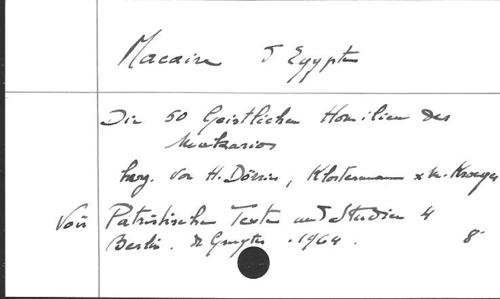 Macaire d'Egypte
Die 50 Geistlichen Homilien des
Makarios
hrsg. von H. Dörries, Klostermann & M. Kroeger
Voir Patristische Texte und Studien 4
Berlin. de Gruyter. 1964. 8°